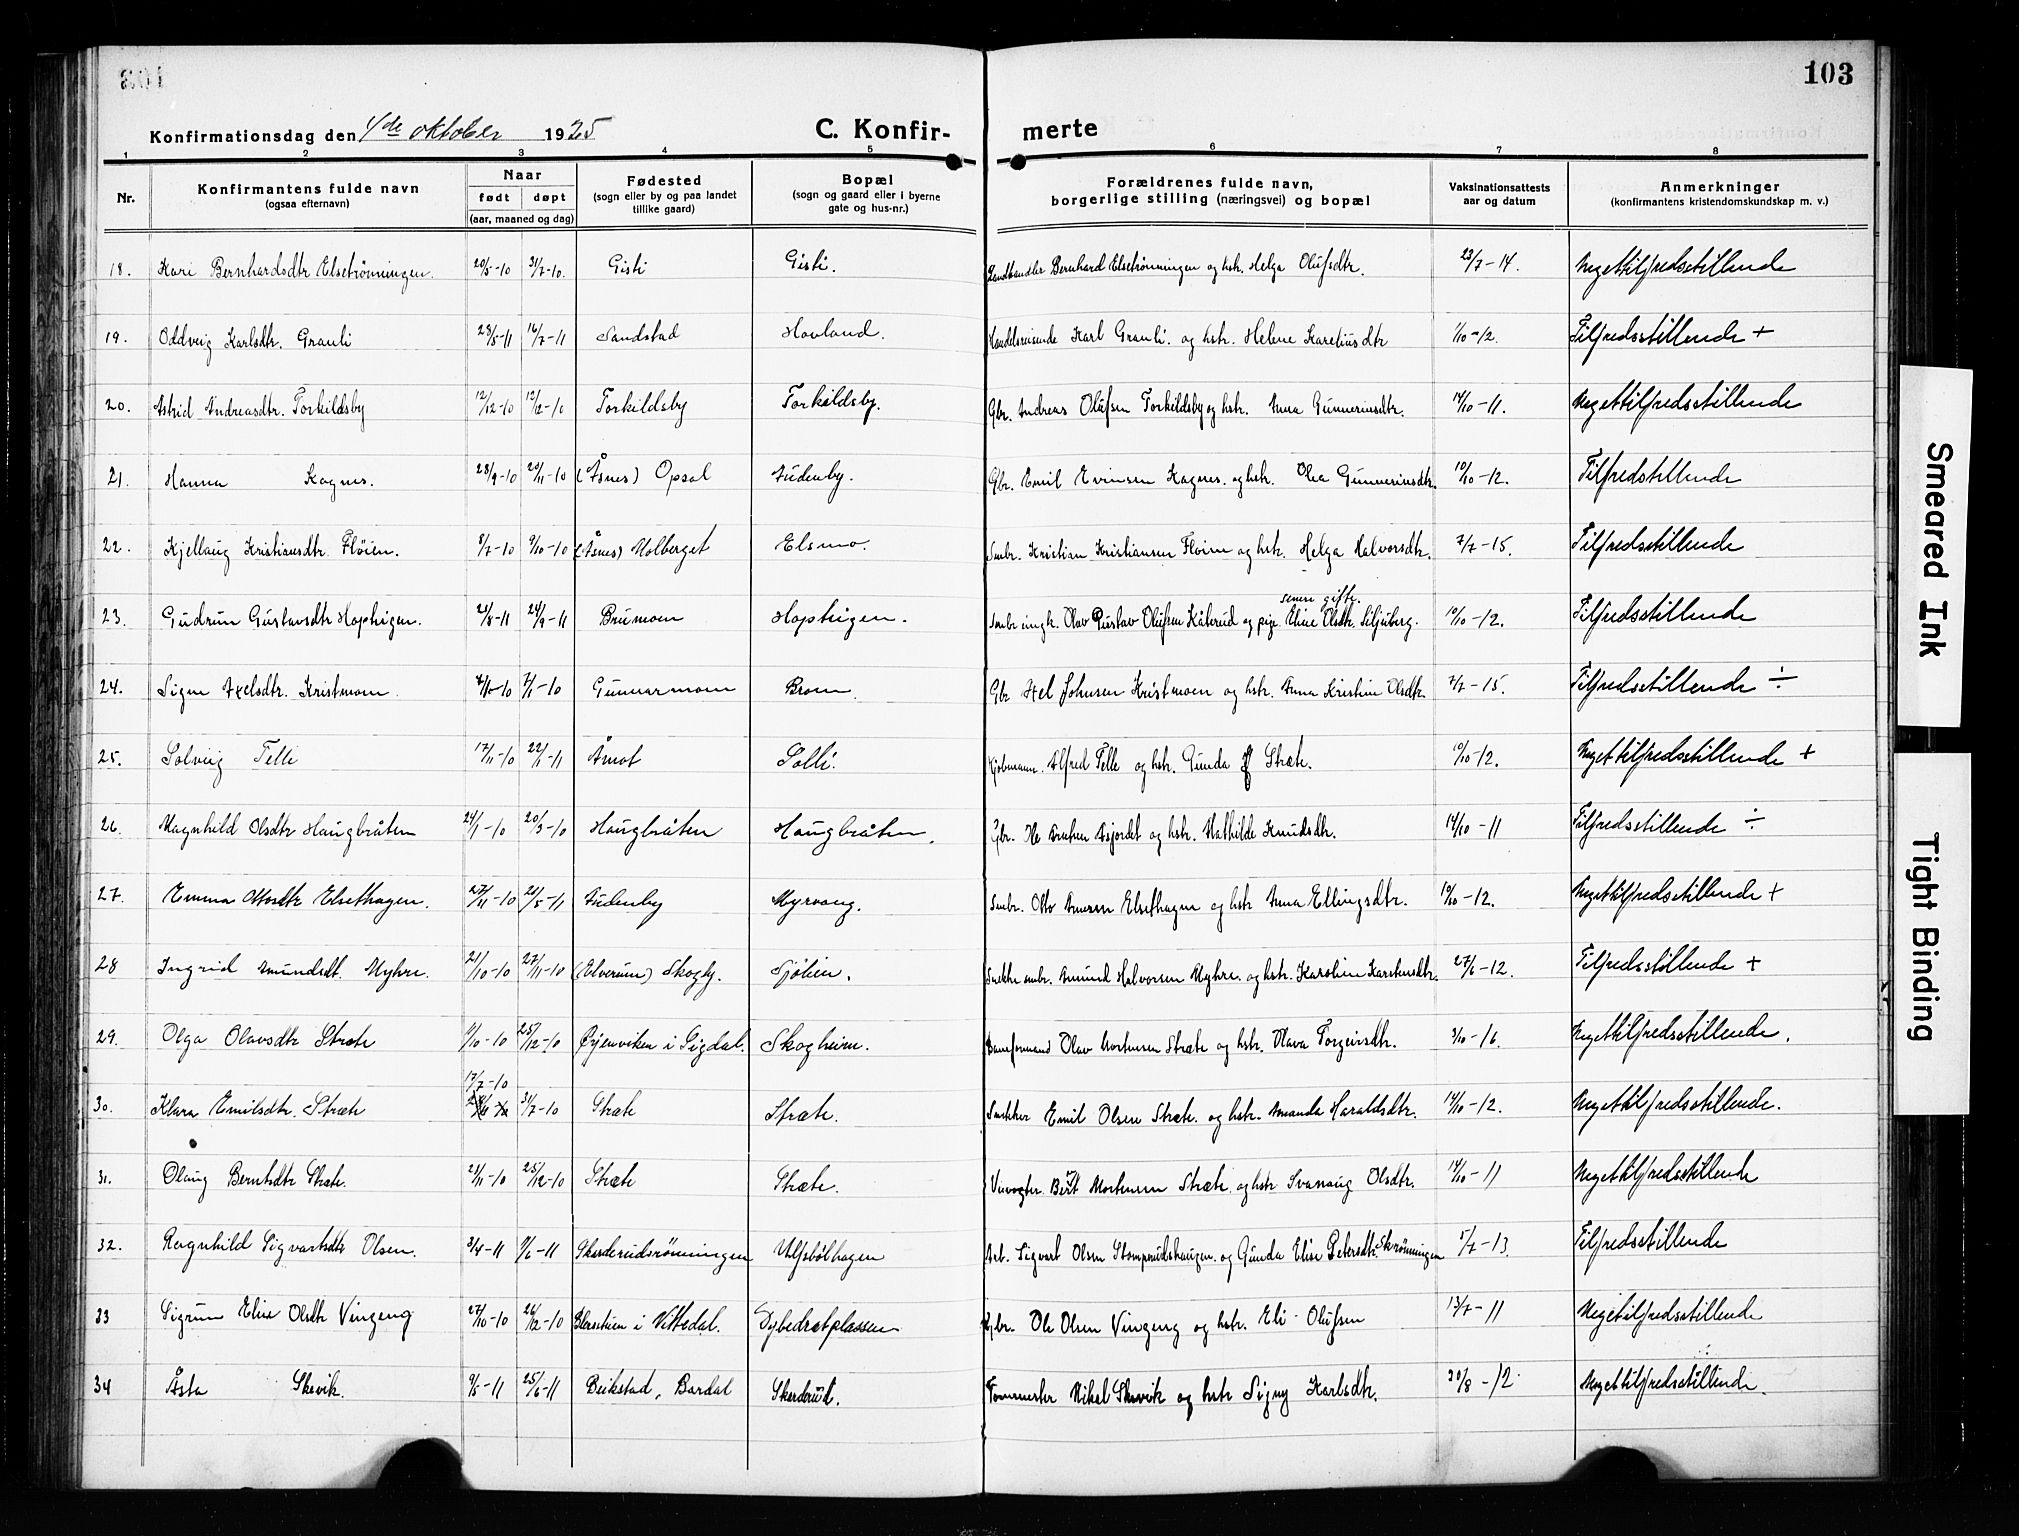 103
Konfirmationsdag den 4de oktober 1925 C. Konfir- merte
1 2 3 4 5 6 7 8
Nr. Konfirmantens fulde navn (ogsaa efternavn) Naar født døpt (aar, maaned og dag) Fødested (sogn eller by og paa landet tillike gaard) Bopæl (sogn og gaard eller i byerne gate og hus-nr.) Forældrenes fulde navn, borgerlige stilling (næringsvei) og bopæl Vaksinationsattests aar og datum Anmerkninger (konfirmantens kristendomskundskap m. v.)
18. Kari Bernhardsdtr Elsetrønningen. 20/5-10 31/7-10. Gisti Gisti. Landhandler Bernhard Elsetrønningen og hstr. Helga Olufsdtr. 23/7-14. Megettilfredsstillende
19. Oddveig Karlsdtr. Granli 28/5-11 16/7-11 Sandstad Hovland. Handelsreisende Karl Granli. og hstr. Helene Kareliusdtr 1/10-12. Tilfredsstillende +
20. Astrid Andreasdtr. Torkildsby 12/12-10 Torkildsby Torkildsby. Gbr. Andreas Olufsen Torkildsby og hstr. Anna Gunneriusdtr. 14/10-11. Megettilfredsstillende
21. Hanna Kagnes. 28/9-10 20/11-10 (Åsnes) Opsal Audenby. Gbr. Emil Evensen Kagnes. og hstr. Olea Gunneriusdtr. 10/10-12. Tilfredstillende
22. Kjellaug Kristiansdtr. Fløien. 8/7-10 9/10-10 (Åsnes) Holberget Elsmo. Smbr. Kristian Kristiansen Fløien og hstr. Helga Halvorsdtr. 7/7-15. Tilfredsstillende
senere gifte.
23. Gudrun Gustavsdtr Haptigen. 24/9-11 Brumoen Haptigen. Smbr ungk. Olav Gustav Olufsen Kåterud og pige Eline Olsdtr. Siljuberg. 10/10-12. Tilfredsstillende
24. Signe Axelsdtr. Kristmoen. Gunnarmoen Broen. Gbr Axel Johnsen Kristmoen og hstr. Anna Kristine Olsdtr. 7/7-15. Tilfredsstillende ÷
25. Solveig Telle 17/11-10 22/1-11 Åmot Solli. Kjøbmann. Alfred Telle og hstr. Gunda Stræte. 10/10-12. Megettilfredsstillende +
26. Magnhild Olsdtr Haugbråten 24/1-10 20/3-10 Haugbråten Haugbråten. Gbr. Asjordet og hstr. Mathilde Knudsdtr. 14/10-11 Tilfredsstillende ÷
27. Emma Ottosdtr Elsethagen. 27/11-10 Audenby Myrvang. Smbr. Otto Amesen Elsethagen og hstr Anna Ellingsdtr. 10/10-12. Megettilfredsstillende +
28 Ingrid Amundsdt. Myhre. 21/10-10 27/11-10 (Elverum) Skogly. Sjølien. Snekker smbr. Amund Halvorsen Myhre. og hstr. Karoline Karstensdtr. 27/6-12. Tilfredsstillende +
29. Olga Olavsdtr Stræte 11/10-10 25/12-10 Øyenviken i Sigdal. Skogheim. Baneformand Olav Mortensen Stræte og hstr. Olava Torgeirsdtr. 3/10-16. Megettilfredsstillende.
17/7-10
30. Klara Emilsdtr. Stræte 31/7-10 Stræte Stræte. Snekker Emil Olsen Stræte. og hstr. Amanda Haraldsdtr. 14/10-12. Megettilfredsstillende.
31. Olaug Berntsdtr Stræte. 21/11-10 25/12-10 Stræte Stræte. Veivogter. Bernt Mortensen Stræte. og hstr Svanaug Olsdtr. 14/10-11 Megettilfredsstillende
32. Ragnhild Sigvartsdtr Olsen. 3/4-11 Skarderudsrønningen Ulfsbølhagen Arb. Sigvart Olsen Stomprudshaugen. og Gunda Elise Petersdtr. Skrønningen 5/7-13. Tilfredsstillende
33 Sigrun Elise Olsdtr Vingeng 27/10-10 26/12-10 Blerstuen i Nittedal. Dybedratplassen Gbr. Ole Olsen Vingeng og hstr. Eli Olufsen 13/7-11 Megettilfredsstillende
34 Åsta Skevik. 9/5-11 25/6-11 Beikstad, Bardal Skarderud. Tommester Mikal Skevik og hstr Signy Karlsdtr. 20/8-12. Megettilfredsstillende.
Smeared Ink
Tight Binding